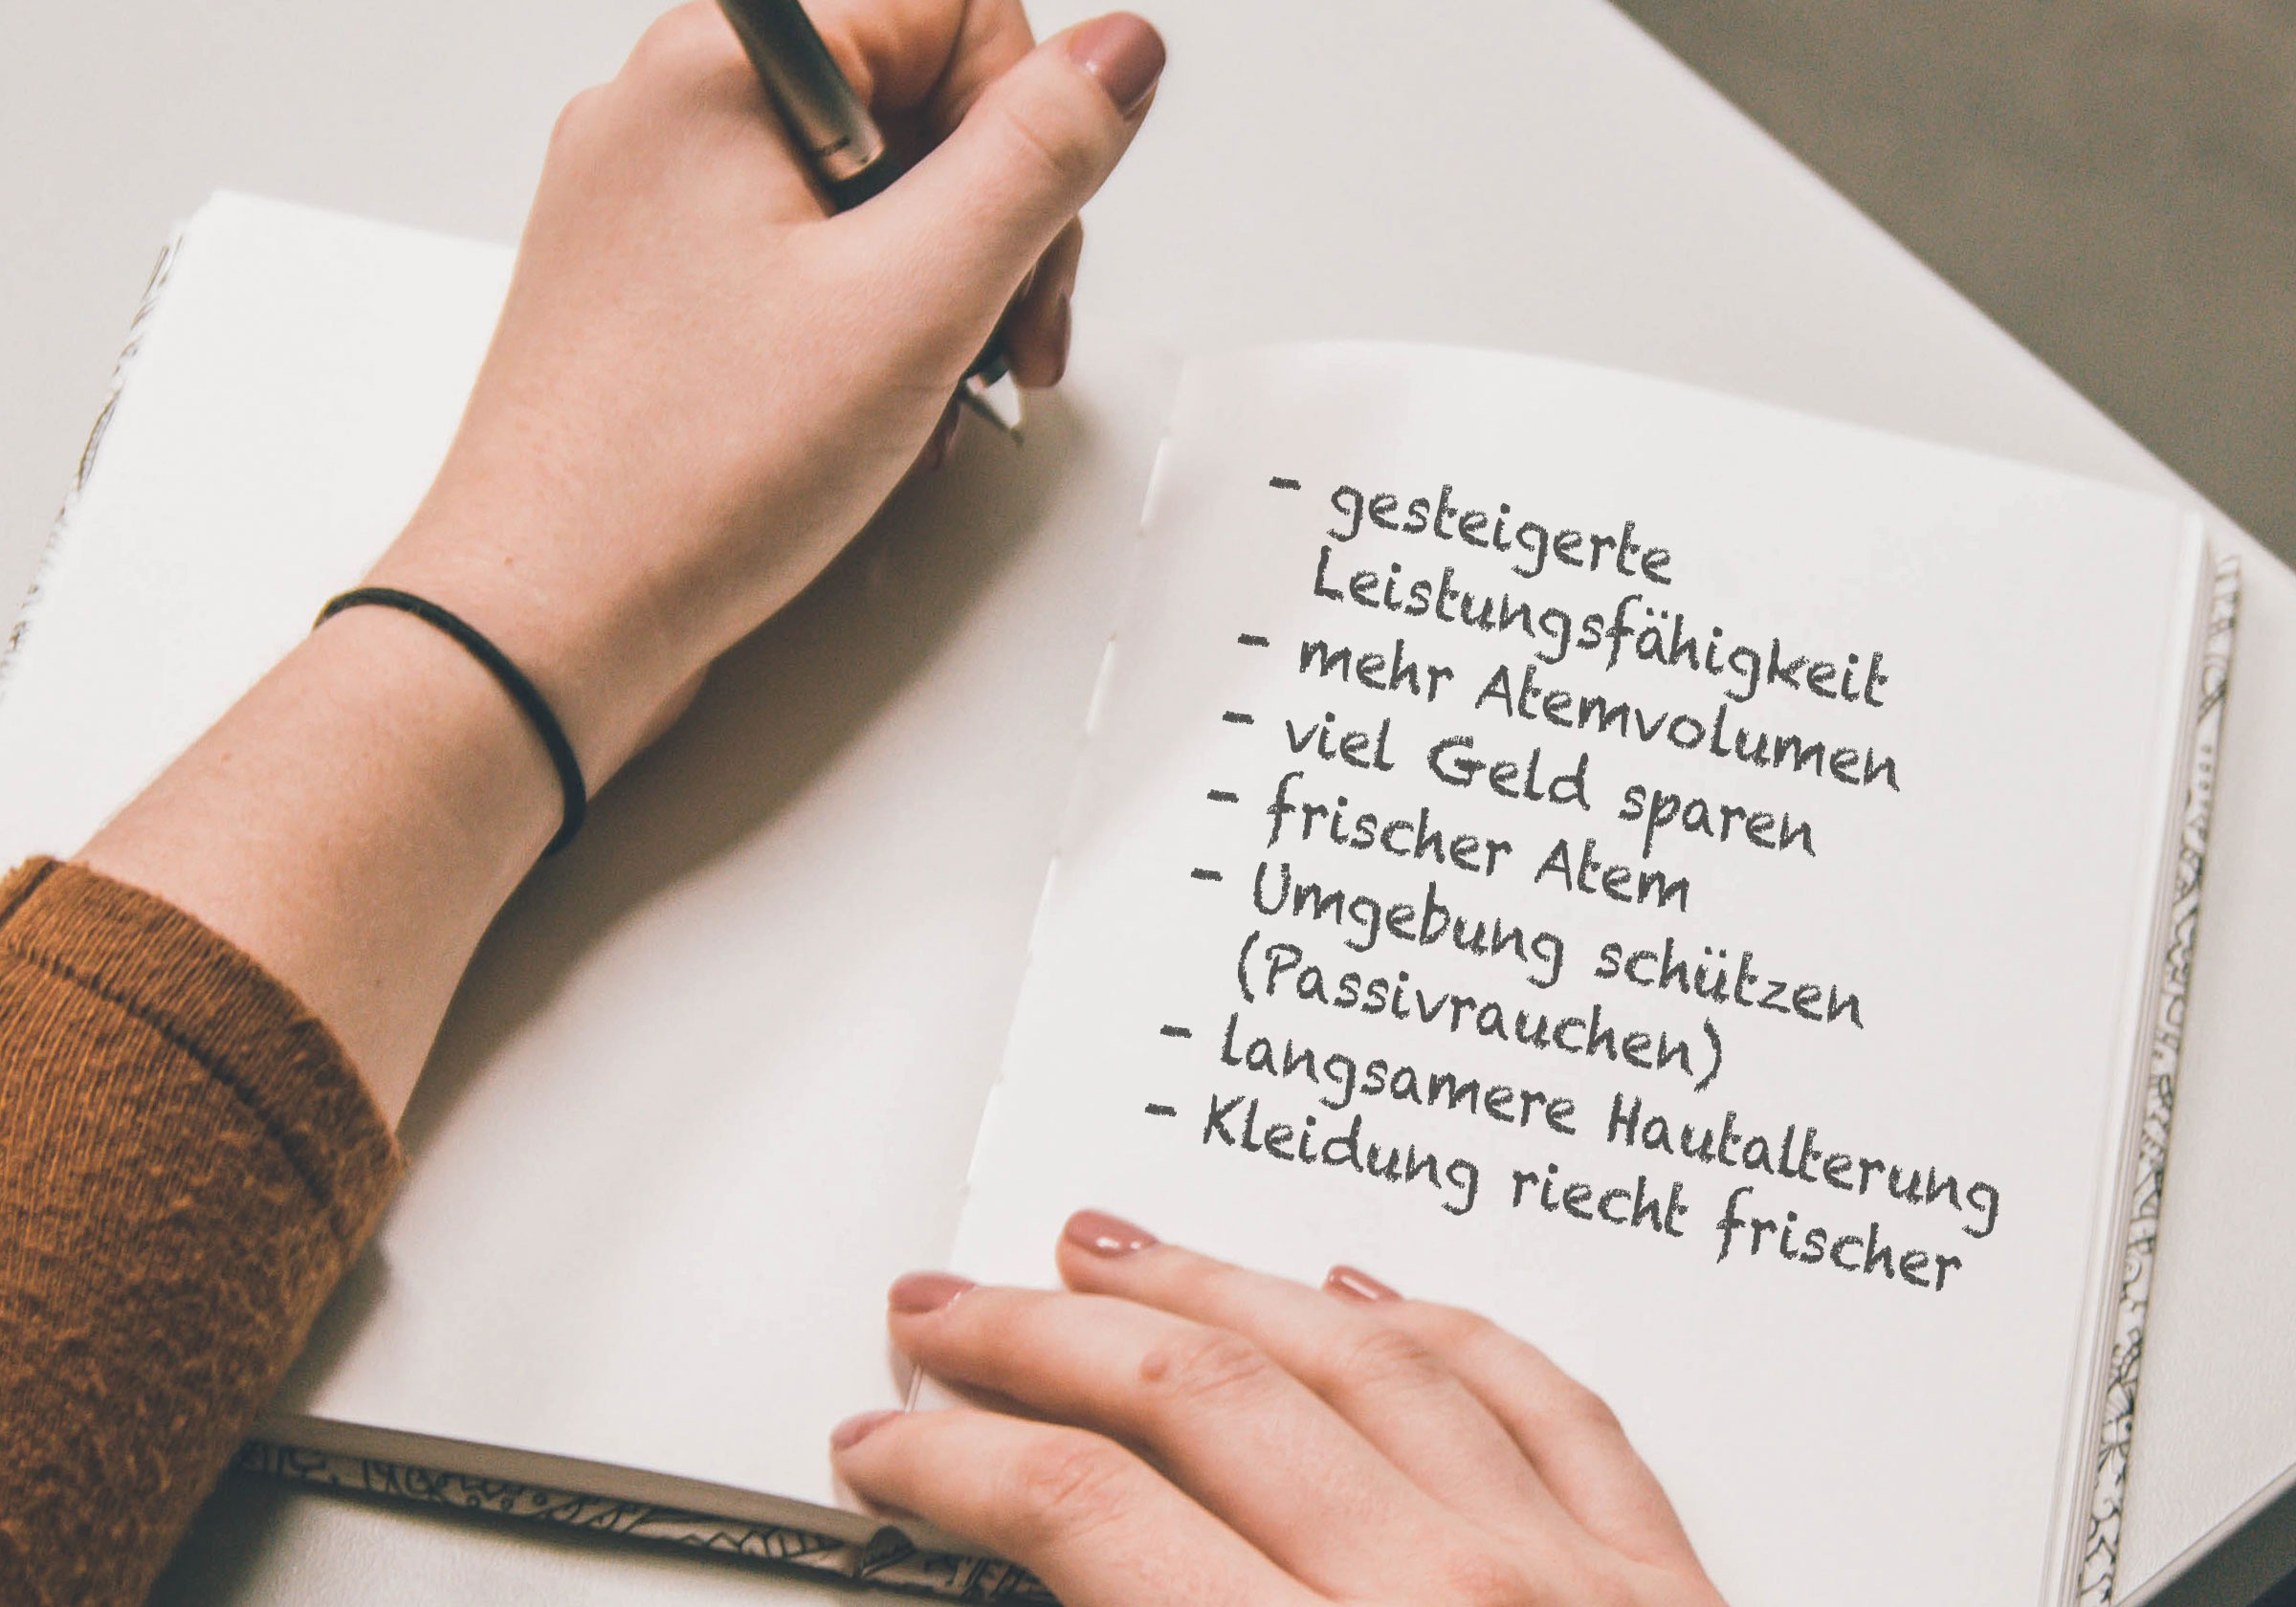 - gesteigerte
Leistungsfähigkeit
- mehr Atemvolumen
- viel Geld sparen
- frischer Atem
- Umgebung schützen
(Passivrauchen)
- langsamere Hautalterung
- Kleidung riecht frischer